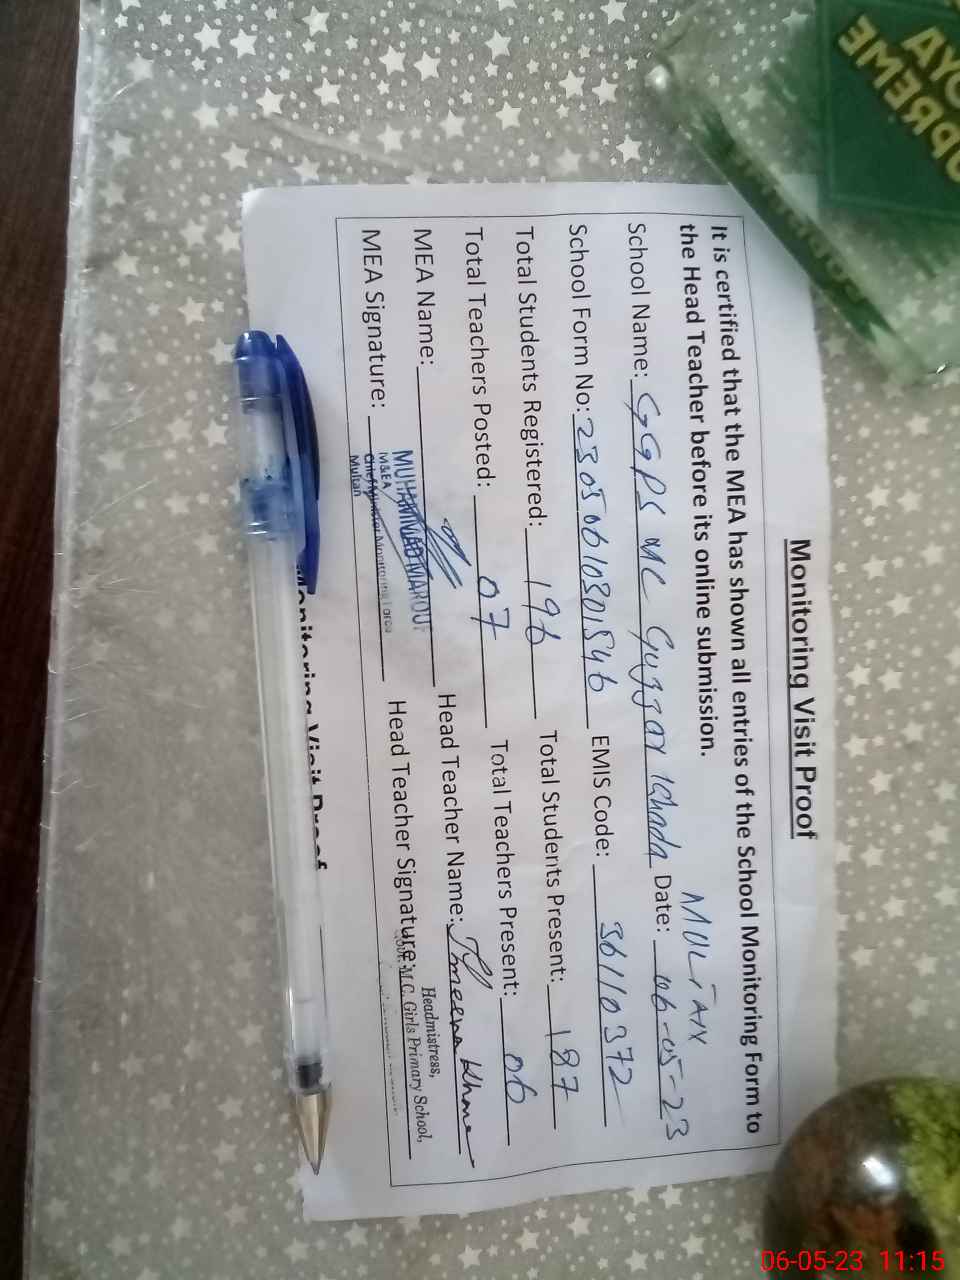 Monitoring Visit Proof
It is certified that the MEA has shown all entries of the School Monitoring Form to
the Head Teacher before its online submission.
MULTAN
School Name: GGPS MC Gujjar Khada Date: 06-05-23
School Form No: 23050610301546 EMIS Code: 36110372
Total Students Registered: 196 Total Students Present: 187
Total Teachers Posted: 07 Total Teachers Present: 06
MEA Name: Head Teacher Name:
MUHAMMAD MAROUF
M&EA
Chief Minister Monitoring Force
Multan
MEA Signature: Head Teacher Signature:
Headmistress,
Govt. M.C. Girls Primary School,
Monitoring Visit Proof
SUPREME
06-05-23 11:15